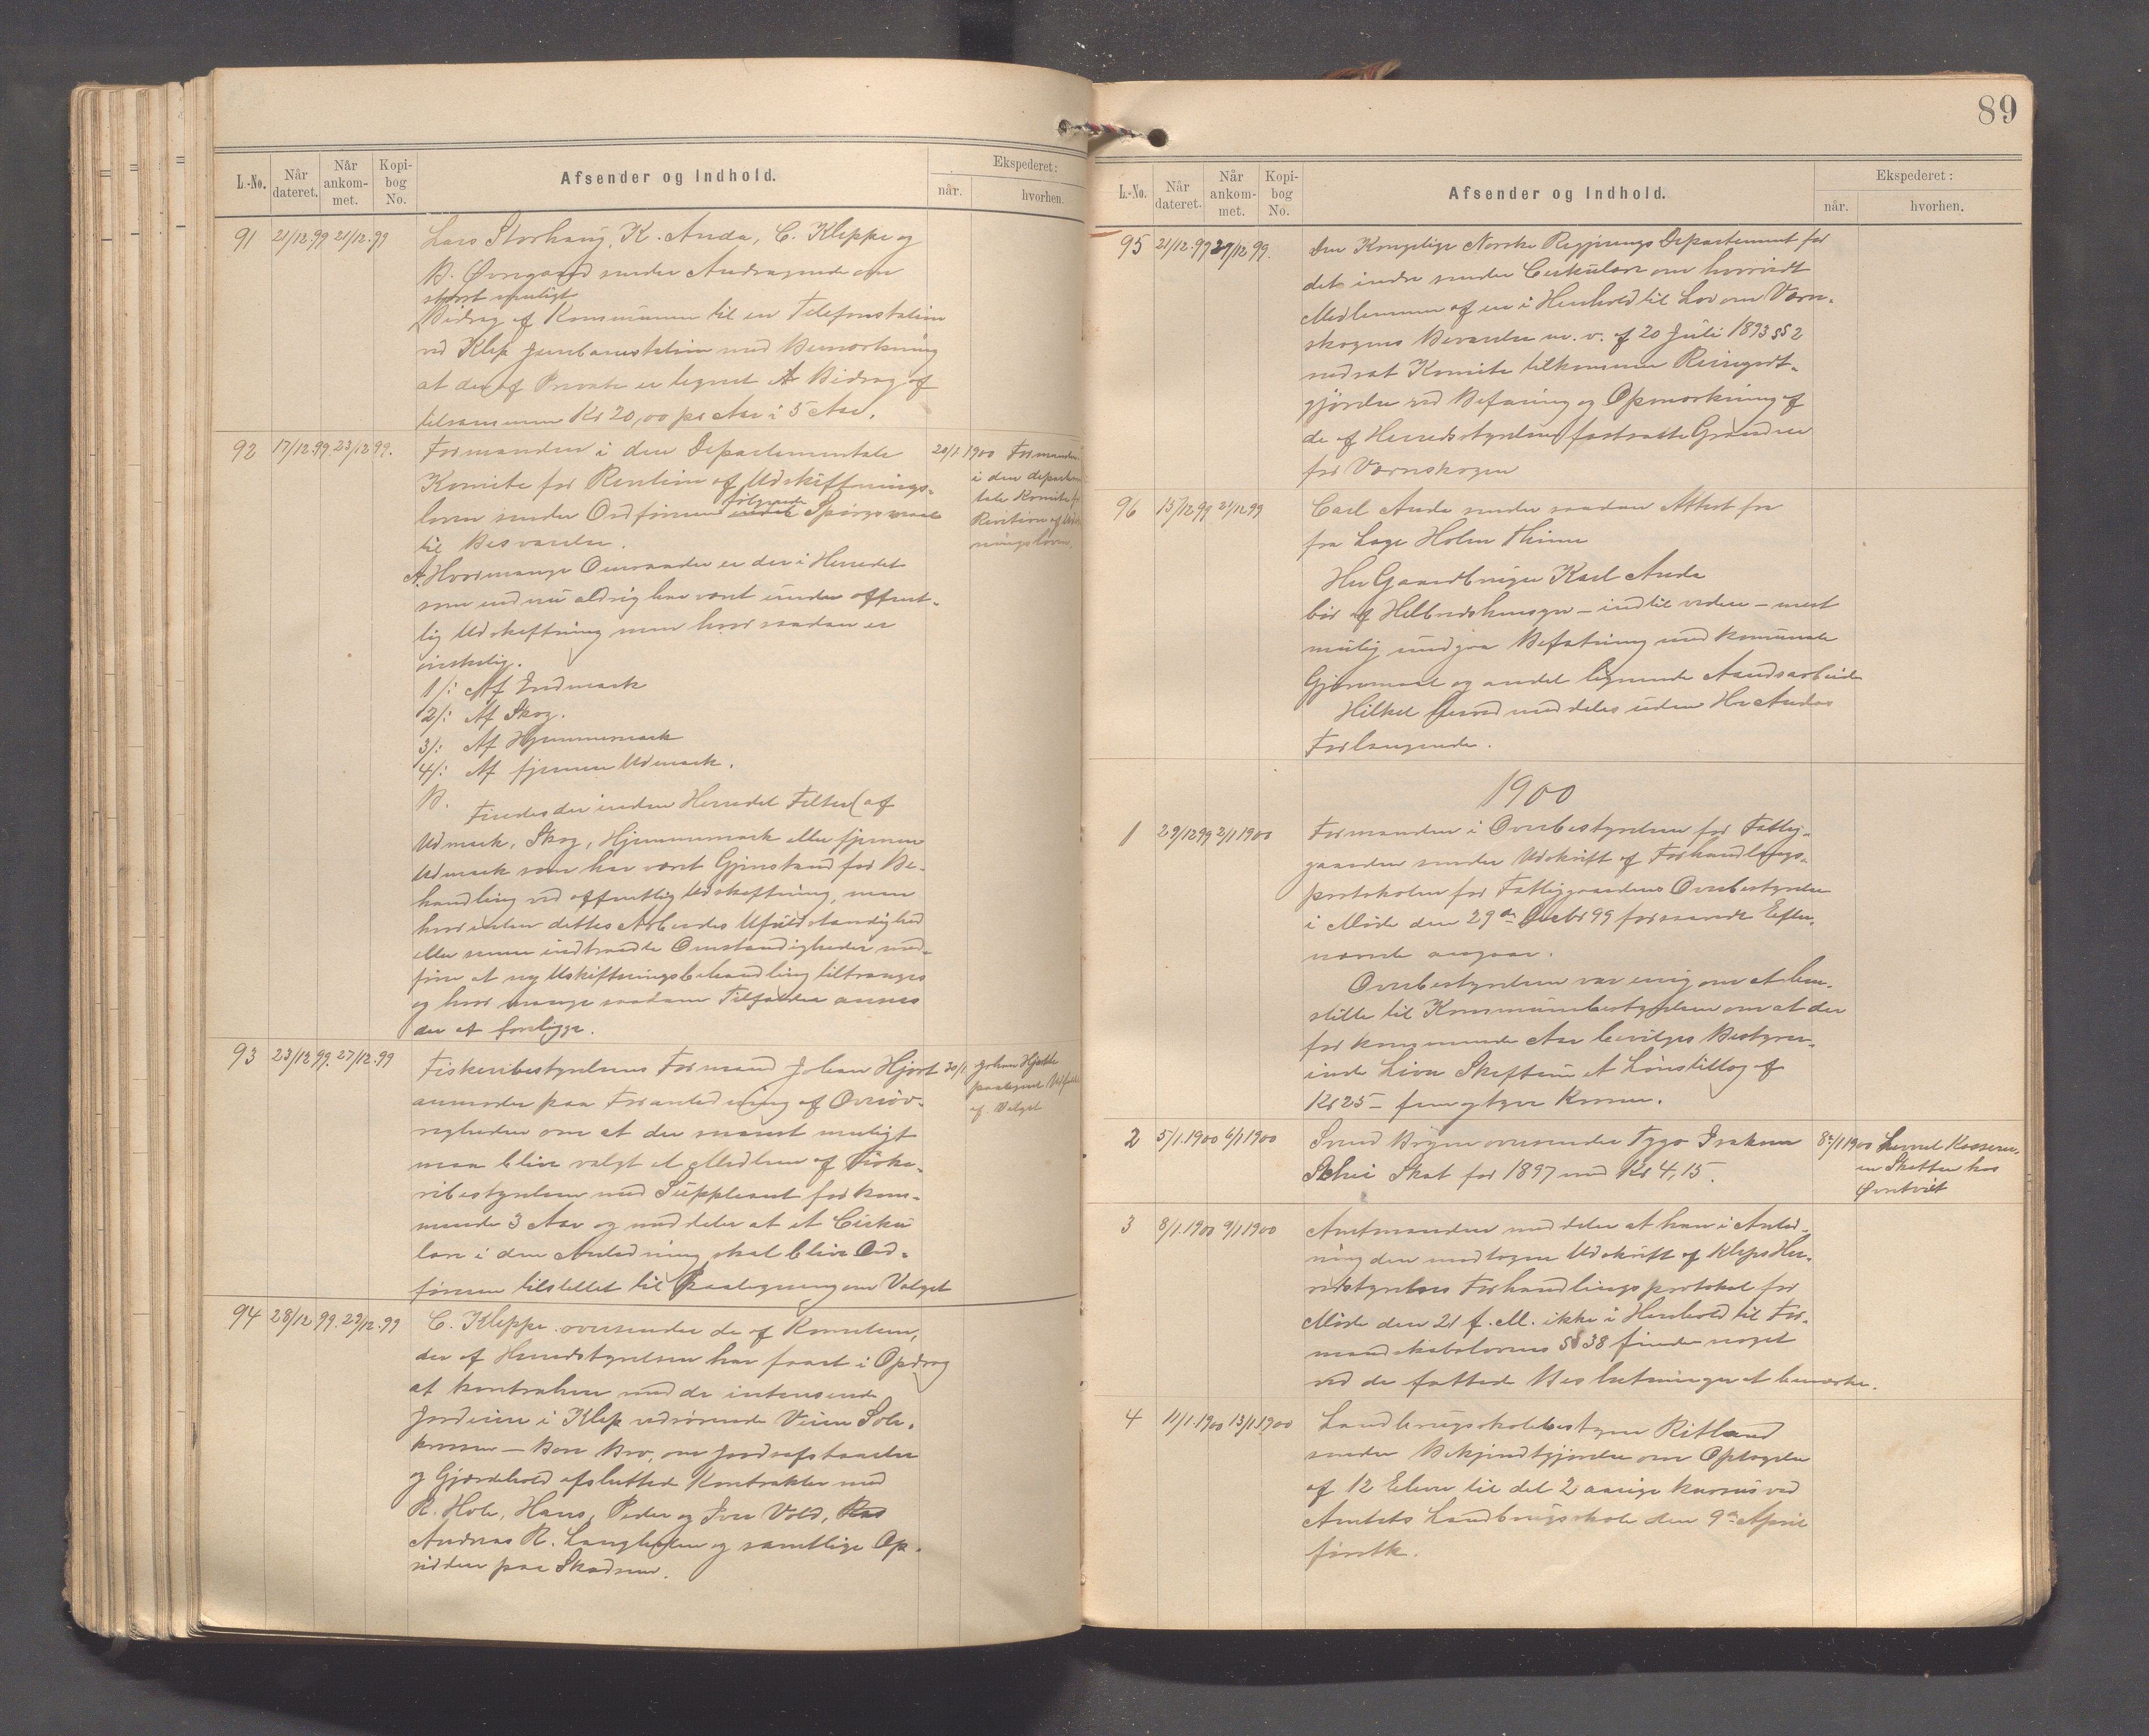 L.-No.
Når dateret.
Når ankom-met.
Kopi-bog No.
Afsender og Indhold.
Ekspederet:
når.
hvorhen.
91 21/12.99 21/12.99 Lars Storhaug, K. Anda, C. Kleppe og
B. Øvregaard sender Andragende om
størst muligt
Bidrag af Kommunen til en Telefonstation
ved Klep Jernbanestation med Bemerkning
at der af Private er tegnet et Bidrag af
tilsammen Kr 20,00 pr Aar i 5 Aar.
92 17/12.99. 23/12 99. Formanden i den Departementale
Komite for Revition af Udskiftnings-
loven sender Ordføreren følgende Spørgsmaal
til Besvarelse.
A. Hvormange Omraader er der i Herredet
som endnu aldrig har været under offent-
lig Udskiftning men hvor saadan er
ønskelig.
1/: Af Indmark
2/: Af Skog.
3/: Af Hjemmemark
4/: Af fjernere Udmark.
B. Findes der inden Herredet Felter (af
Udmark, Skog, Hjemmemark eller fjernere
Udmark som har været Gjenstand for Be-
handling ved offentlig Udskiftning, men
hvor enten dettes Arbeides Ufuldstændighed
eller senere indtraadte Omstændigheder med-
fører at ny Udskiftningsbehandling tiltrænges
og hvor mange saadanne Tilfælde annes
der at foreligge.
20/1 1900 Formanden
i den departemen
tale Komite for
Revition af Udskift
ningsloven.
93 23/12 99. 27/12.99 Fiskeribestyrelsens Formand Johan Hjort
anmoder paa Foranledning af Overøv-
righeden om at der snarest muligt
maa blive valgt et Medlem af Fiske-
ribestyrelsen med Suppleant for kom-
mende 3 Aar og meddeler at et Cirku
lære i den Anledning skal blive Ord-
føreren tilstillet til Paategning om Valget
30/1 Johan Hjort
paategnet Udfaldet
af Valget
94 28/12 99. 29/12.99 C. Kleppe oversender de af Komiteen,
der af Herredstyrelsen har faaet i Opdrag
at kontrahere med de interesserede
Jordeiere i Klep vedrørende Veien Sole-
krossen – Bore Bro, om Jordafstaaelse
og Gjærdehold afsluttede Kontrakter med
R. Hole, Hans, Peder og Iver Vold, Ras
Andreas R. Langholen og samtlige Op-
siddere paa Skadsem.
89
L.-No.
Når dateret.
Når ankom-met.
Kopi-bog No.
Afsender og Indhold.
Ekspederet:
når.
hvorhen.
95 21/12.99 27/12 99. Den Kongelige Norske Regjerings Departement for
det indre sender Cirkulære om hvorvidt
Medlemmer af en i Henhold til Lov om Værn-
skogens Bevarelse m. v. af 20 Juli 1893 §§ 2
nedsat Komite tilkommer Reisegodt-
gjørelse ved Befaring og Opmerkning af
de af Herredsstyrelsen fastsatte Grændser
for Værnskogen
96 15/12 99 21/12 99 Carl Anda sender saadan Attest fra
fra Læge Holm Thinn
Hr Gaardbruger Karl Anda
bør af Helbredshensyn – indtil videre – mest
mulig undgaa Befatning med kommunale
Gjøremaal og andet lignende Aandsarbeide
Hilket herved meddeles uden Hr Andas
Forlangende.
1900
1 29/12 99 2/1 1900 Formanden i Overbestyrelsen for Fattig-
gaarden sender Udskrift af Forhandlings-
protokolen for Fattiggaardens Overbestyrelse
i Møde den 29de Decbr 99 forsaavidt Efter-
nævnte angaar.
Overbestyrelsen var enig om at hen-
stille til Kommunebestyrelsen om at der
for kommende Aar bevilges Bestyrer-
inde Lisa Skeftun et Lønstillæg af
Kr 25 – fem og tyve Kroner.
2 5/1.1900 6/1 1900 Svend Bryne oversender Tygo Isaksen
Schei Skat for 1897 med Kr 4,15.
8de/1 1900 Leveret Kasserer-
en Skatten hos
Øvretvet
3 8/1.1900 9/1 1900 Amtmanden meddeler at han i Anled-
ning den modtagne Udskrift af Kleps Her-
redstyrelses Forhandlingsprotokol for
Møde den 21 f. M. ikke i Henhold til For-
mandskabslovens § 38 finder noget
ved de fattede Beslutninger at bemærke.
4 11/1.1900 13/1 1900 Landbrugsskolebestyrer Ritland
sender Bekjendtgjørelse om Optagelse
af 12 Elever til det 2 aarige kursus ved
Amtets Landbrugsskole den 9de April
førstk.